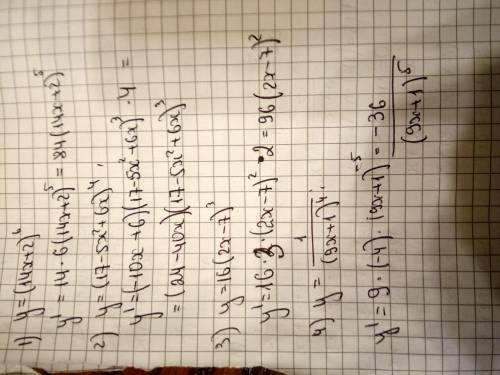 1) y=(14x+2)⁶
y'=14·6(14x+2)⁵=84(14x+2)⁵
2) y=(17-5x²+6x)⁴;
y'=(-10x+6)(17-5x²+6x)³·4=
=(24-40x)(17-5x²+6x)³
3) y=16(2x-7)³
y'=16·3·(2x-7)²·2=96(2x-7)²
4) y=1/(9x+1)⁴;
y'=9·(-4)·(9x+1)⁻⁵=-36/(9x+1)⁵